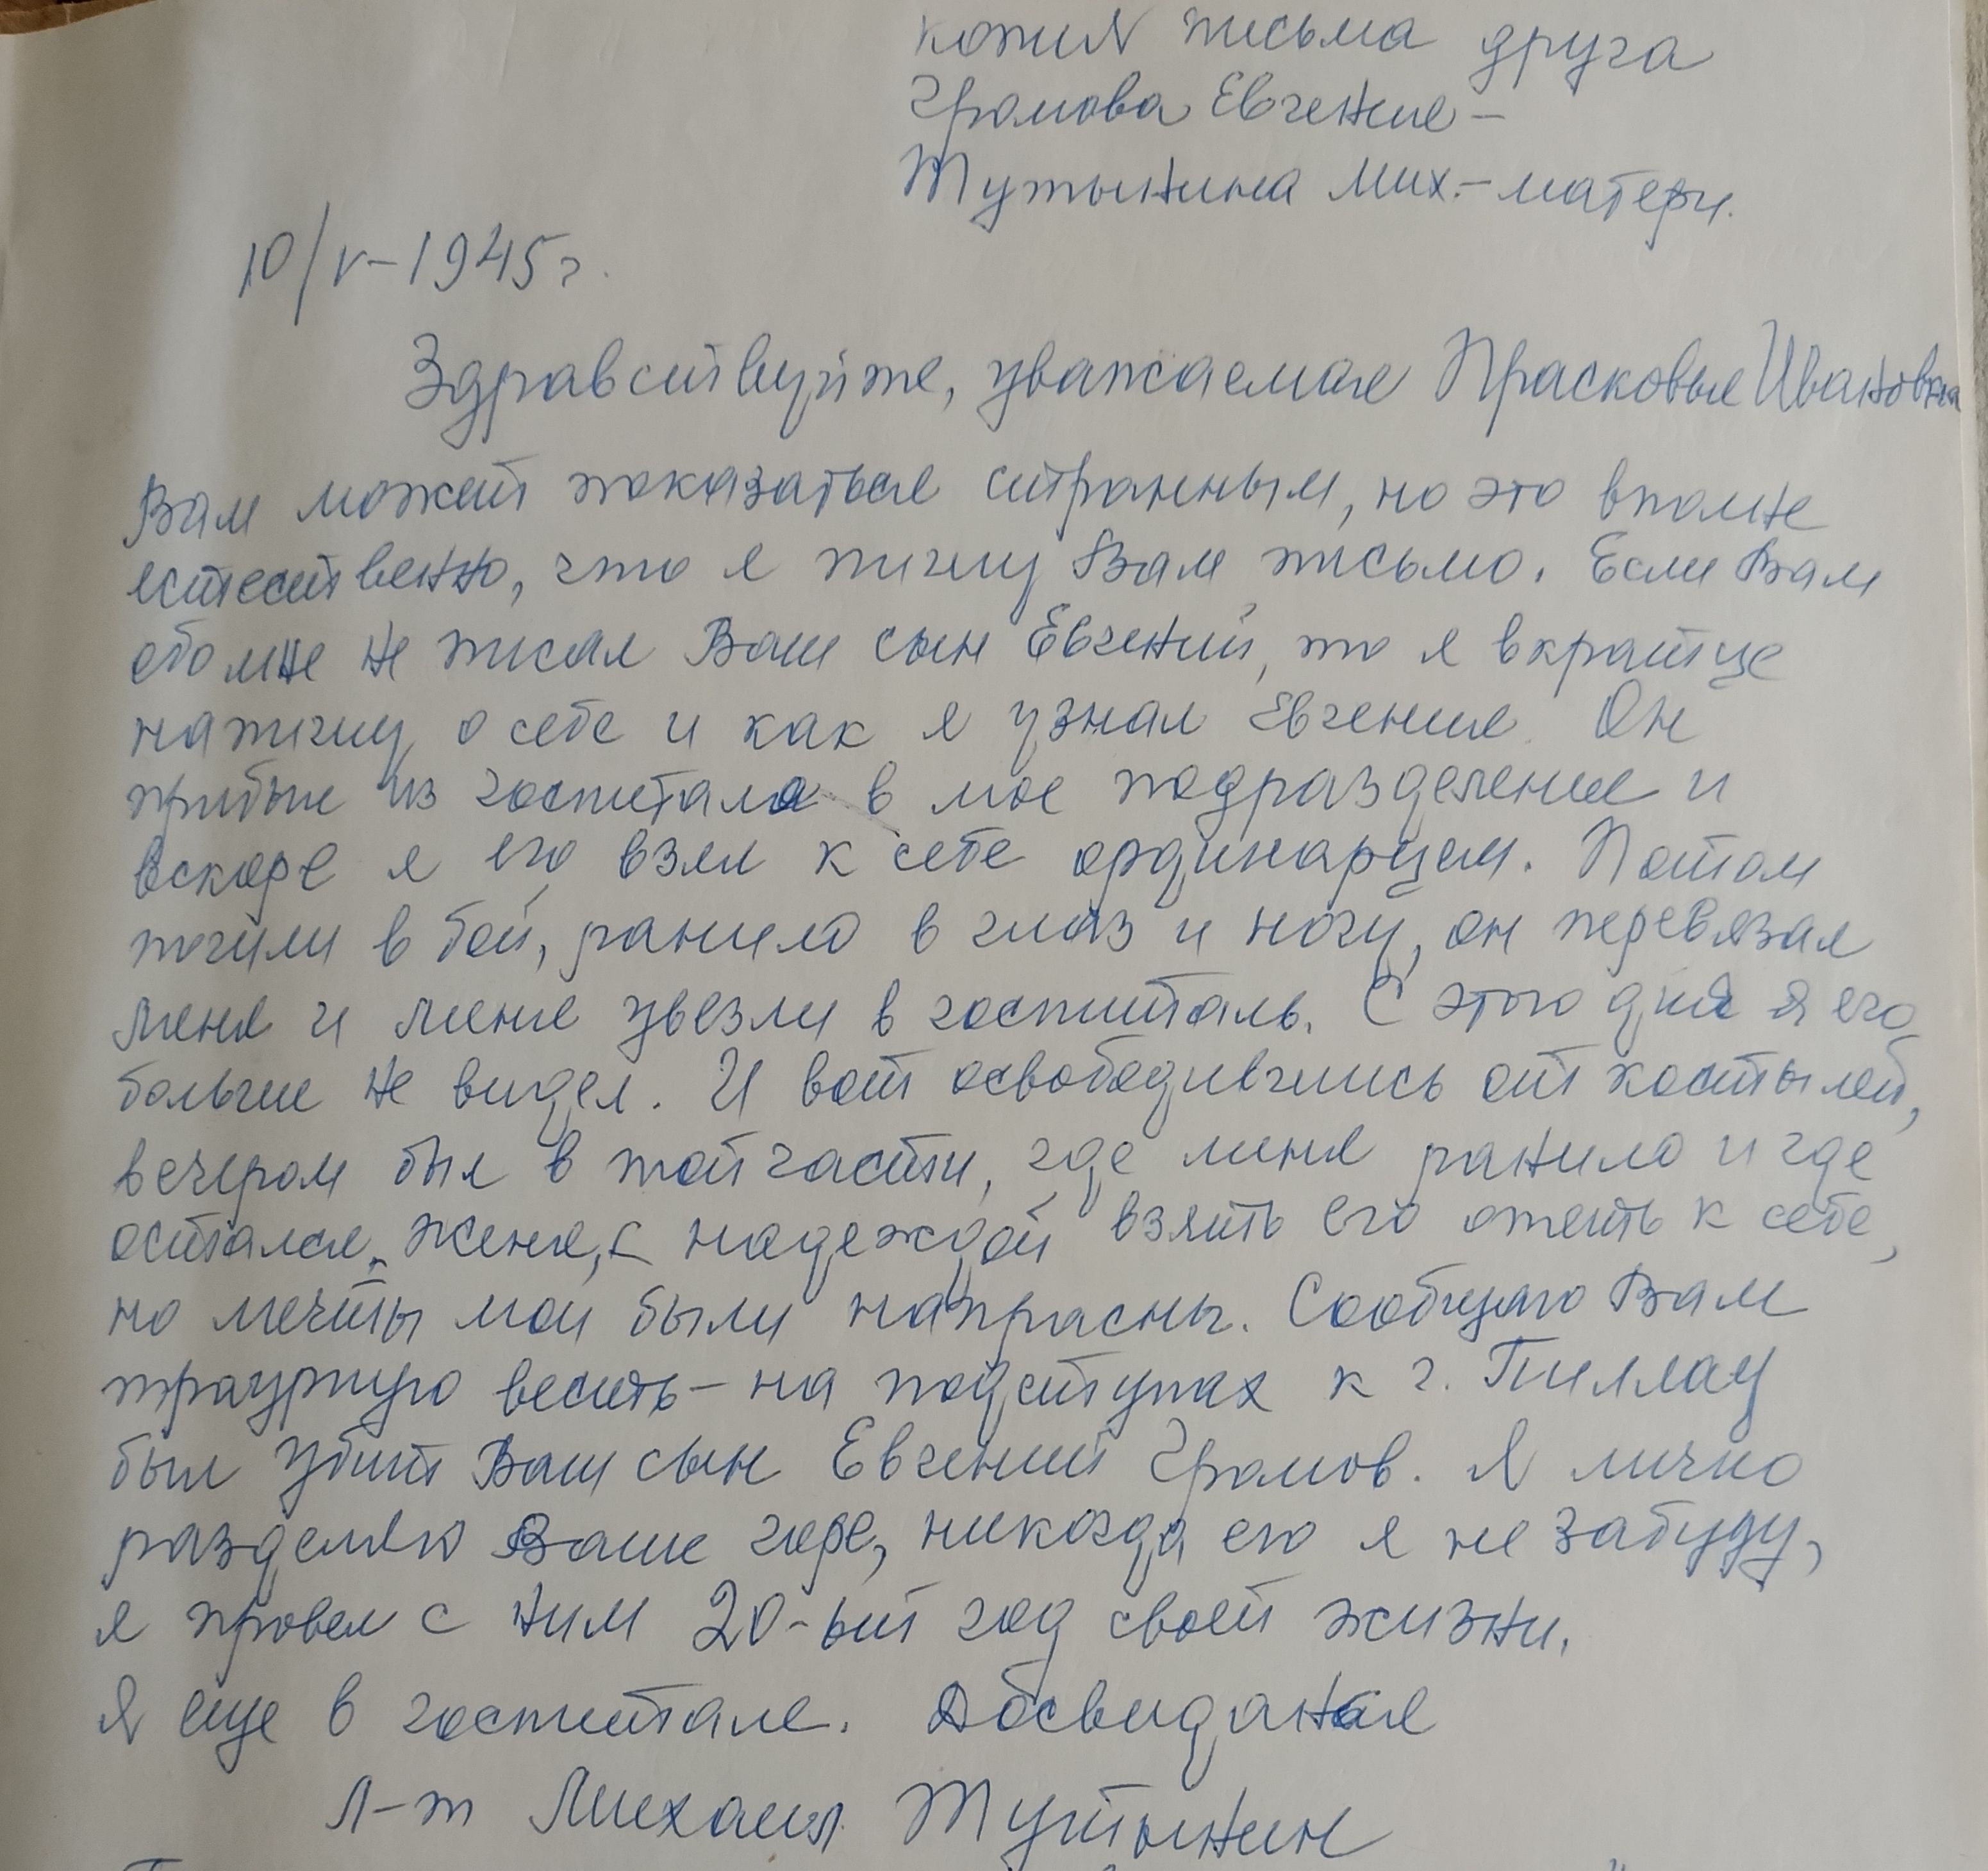 копия письма друга
Громова Евгения –
Тутынина Мих. – матери.
10/V – 1945 г.
Здравствуйте, уважаемая Прасковья Ивановна
Вам может показаться странным, но это вполне
естественно, что я пишу Вам письмо. Если Вам
обо мне не писал Ваш сын Евгений, то я вкратце
напишу о себе и как я узнал Евгения. Он
прибыл из госпиталя в мое подразделение и
вскоре я его взял к себе ординарцем. Потом
пошли в бой, ранило в глаз и ногу, он перевязал
меня и меня увезли в госпиталь. С этого дня я его
больше не видел. И вот освободившись от костылей,
вечером был в той части, где меня ранило и где
остался Женя, с надеждой взять его опять к себе,
но мечты мои были напрасны. Сообщаю Вам
траурную весть – на подступах к г. Пиллау
был убит Ваш сын Евгений Громов. Я лично
разделяю Ваше горе, никогда его я не забуду,
я провел с ним 20-ый год своей жизни.
Я еще в госпитале. Досвидания
Л-т Михаил Тутынин